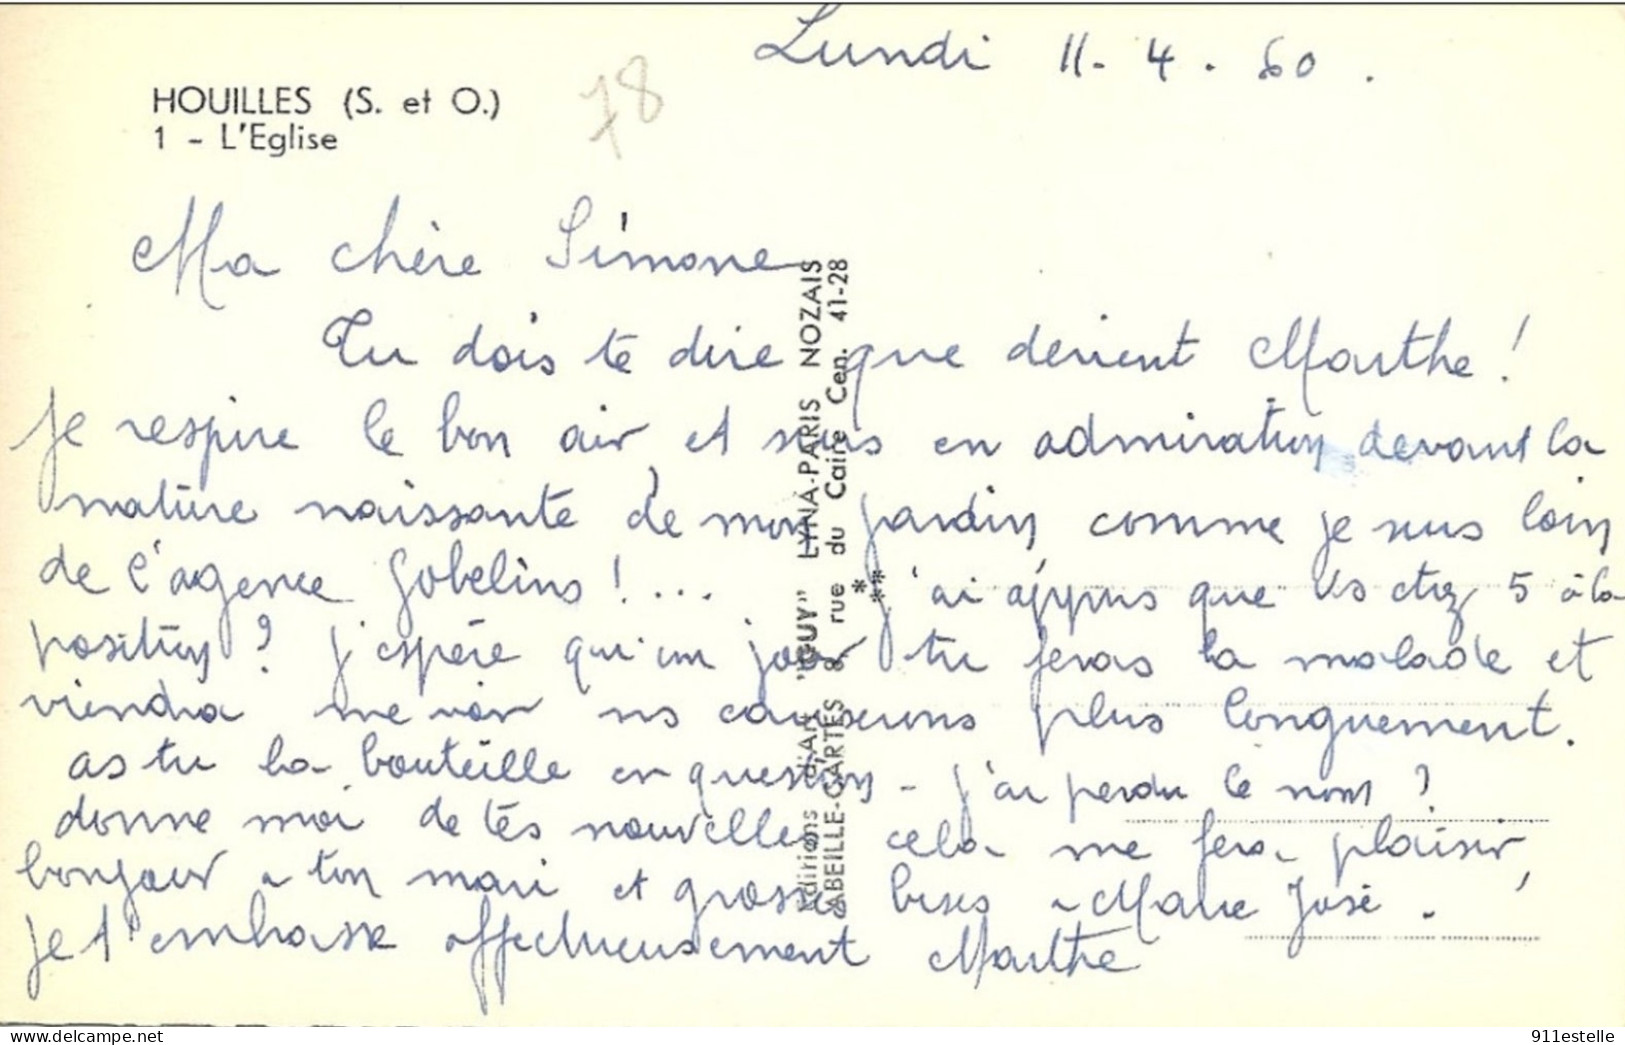 Lundi 11. 4. 60.
HOUILLES (S. et O.)
1 - L'Eglise
78
Ma chère Simone
Tu dois te dire que devient Marthe !
je respire le bon air et suis en admiration devant la
nature naissante de mon jardin comme je suis loin
de l'agence Gobelins !... j'ai appris que Vs etiez 5 à la
position ? j'espère qu'un jour tu feras la malade et
viendra me voir ns causerons plus longuement.
as tu la bouteille en question - j'ai perdu le nom ?
donne moi de tes nouvelles cela me fera plaisir,
bonjour a ton mari et grosses bises a Marie José.
je t'embrasse affectueusement Marthe
Editions d'Art "GUY" LYNA-PARIS NOZAIS
ABEILLE-CARTES 8, rue du Caire Cen. 41-28
www.delcampe.net
911estelle